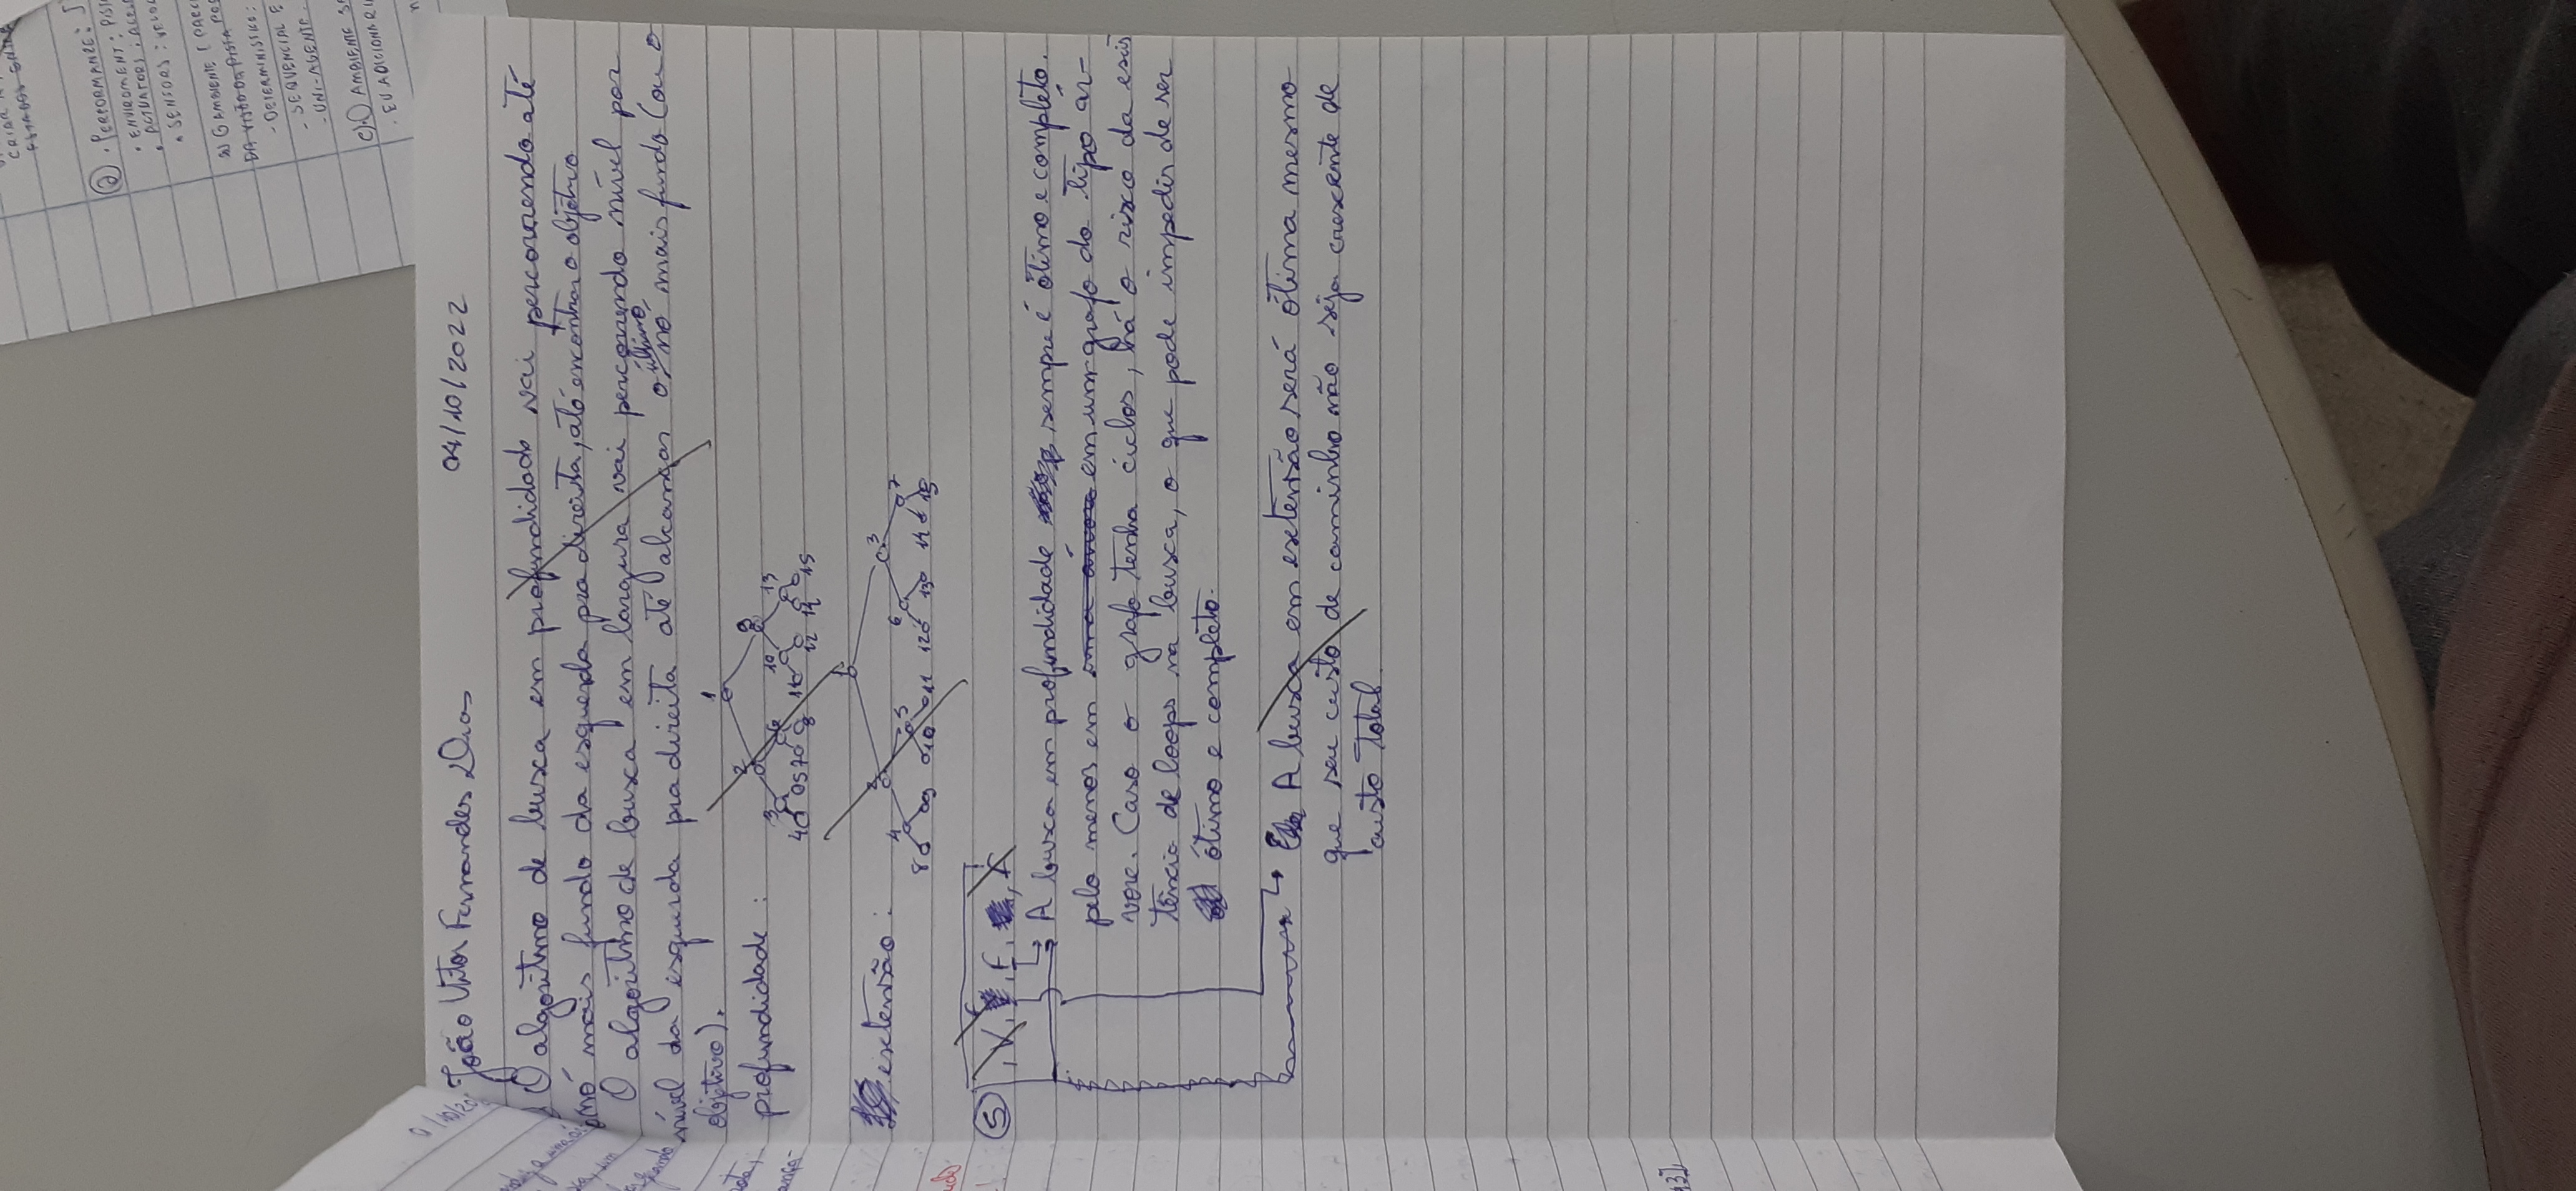 CRIAR
ESTADOS
② • PERFORMANZE:
• ENVIROMENT: PIST
• ACTUATORS: ACEL
• SENSORS: VELOC
AMBIENTE
DA VISÃO DA PISTA POS
- DETERMINISTICO:
- SEQUENCIAL E
- UNI-AGENTE.
c) O AMBIENTE
• EU ADICIONARI
João Vitor Fernandes Dias 04/10/2022
O algoritmo de busca em profundidade vai percorrendo até
o nó mais fundo da esquerda pra direita, até encontrar o objetivo
O algoritmo de busca em largura vai percorrendo nível por
nível da esquerda pra direita até alcançar o último nó mais fundo (ou o
objetivo).
profundidade:
1
2 9
3 6 10 13
4 5 7 8 11 12 14 15
extensão:
1
2 3
4 5 6 7
8 9 10 11 12 13 14 15
⑤ , V, , F, ,
A busca em profundidade sempre é ótimo e completo.
pelo menos em uma árvore em um grafo do tipo ár-
vore. Caso o grafo tenha ciclos, há o risco da exis
tência de loops na busca, o que pode impedir de ser
ótimo e completo.
A busca em extensão será ótima mesmo
que seu custo de caminho não seja crescente de
custo total.